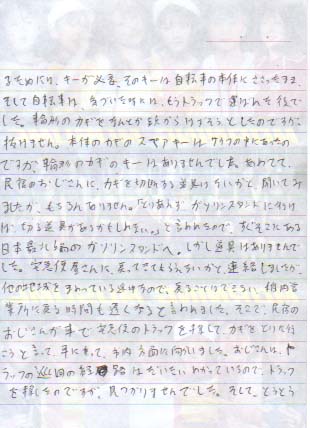 るためには、キーが必要。そのキーは自転車の本体にささったまま。
そして自転車は、気づいた時には、もうトラックで運ばれた後で
した。輪所のカギをなんとか鉄からはずそうとしたのですが、
抜けません。本体のカギのスペアキーはサイフの中にあったの
ですが、輪所のカギのキーはありませんでした。あわてて、
民宿のおじさんに、カギを切断する道具はないかと、聞いてみ
ましたが、もちろんありません。「とりあえずガソリンスタンドに行け
ば、切る道具があるかもしれない。」と言われたので、すぐそこにある
日本最北端のガソリンスタンドへ。しかし道具はありませんで
した。宅急便屋さんに、戻ってきてもらえないかと、連絡しましたが、
他の地域をまわっている途中なので、戻ることはできない、稚内営
業所に戻る時間も遅くなると言われました。そこで、民宿の
おじさんが車で宅急便のトラックを探して、カギをとりに行
こうと言って、車に乗って、稚内方面に向かいました。おじさんは、ト
ラックの巡回の経路はだいたいわかっているので、トラック
を探したのですが、見つかりませんでした。そして、とうとう